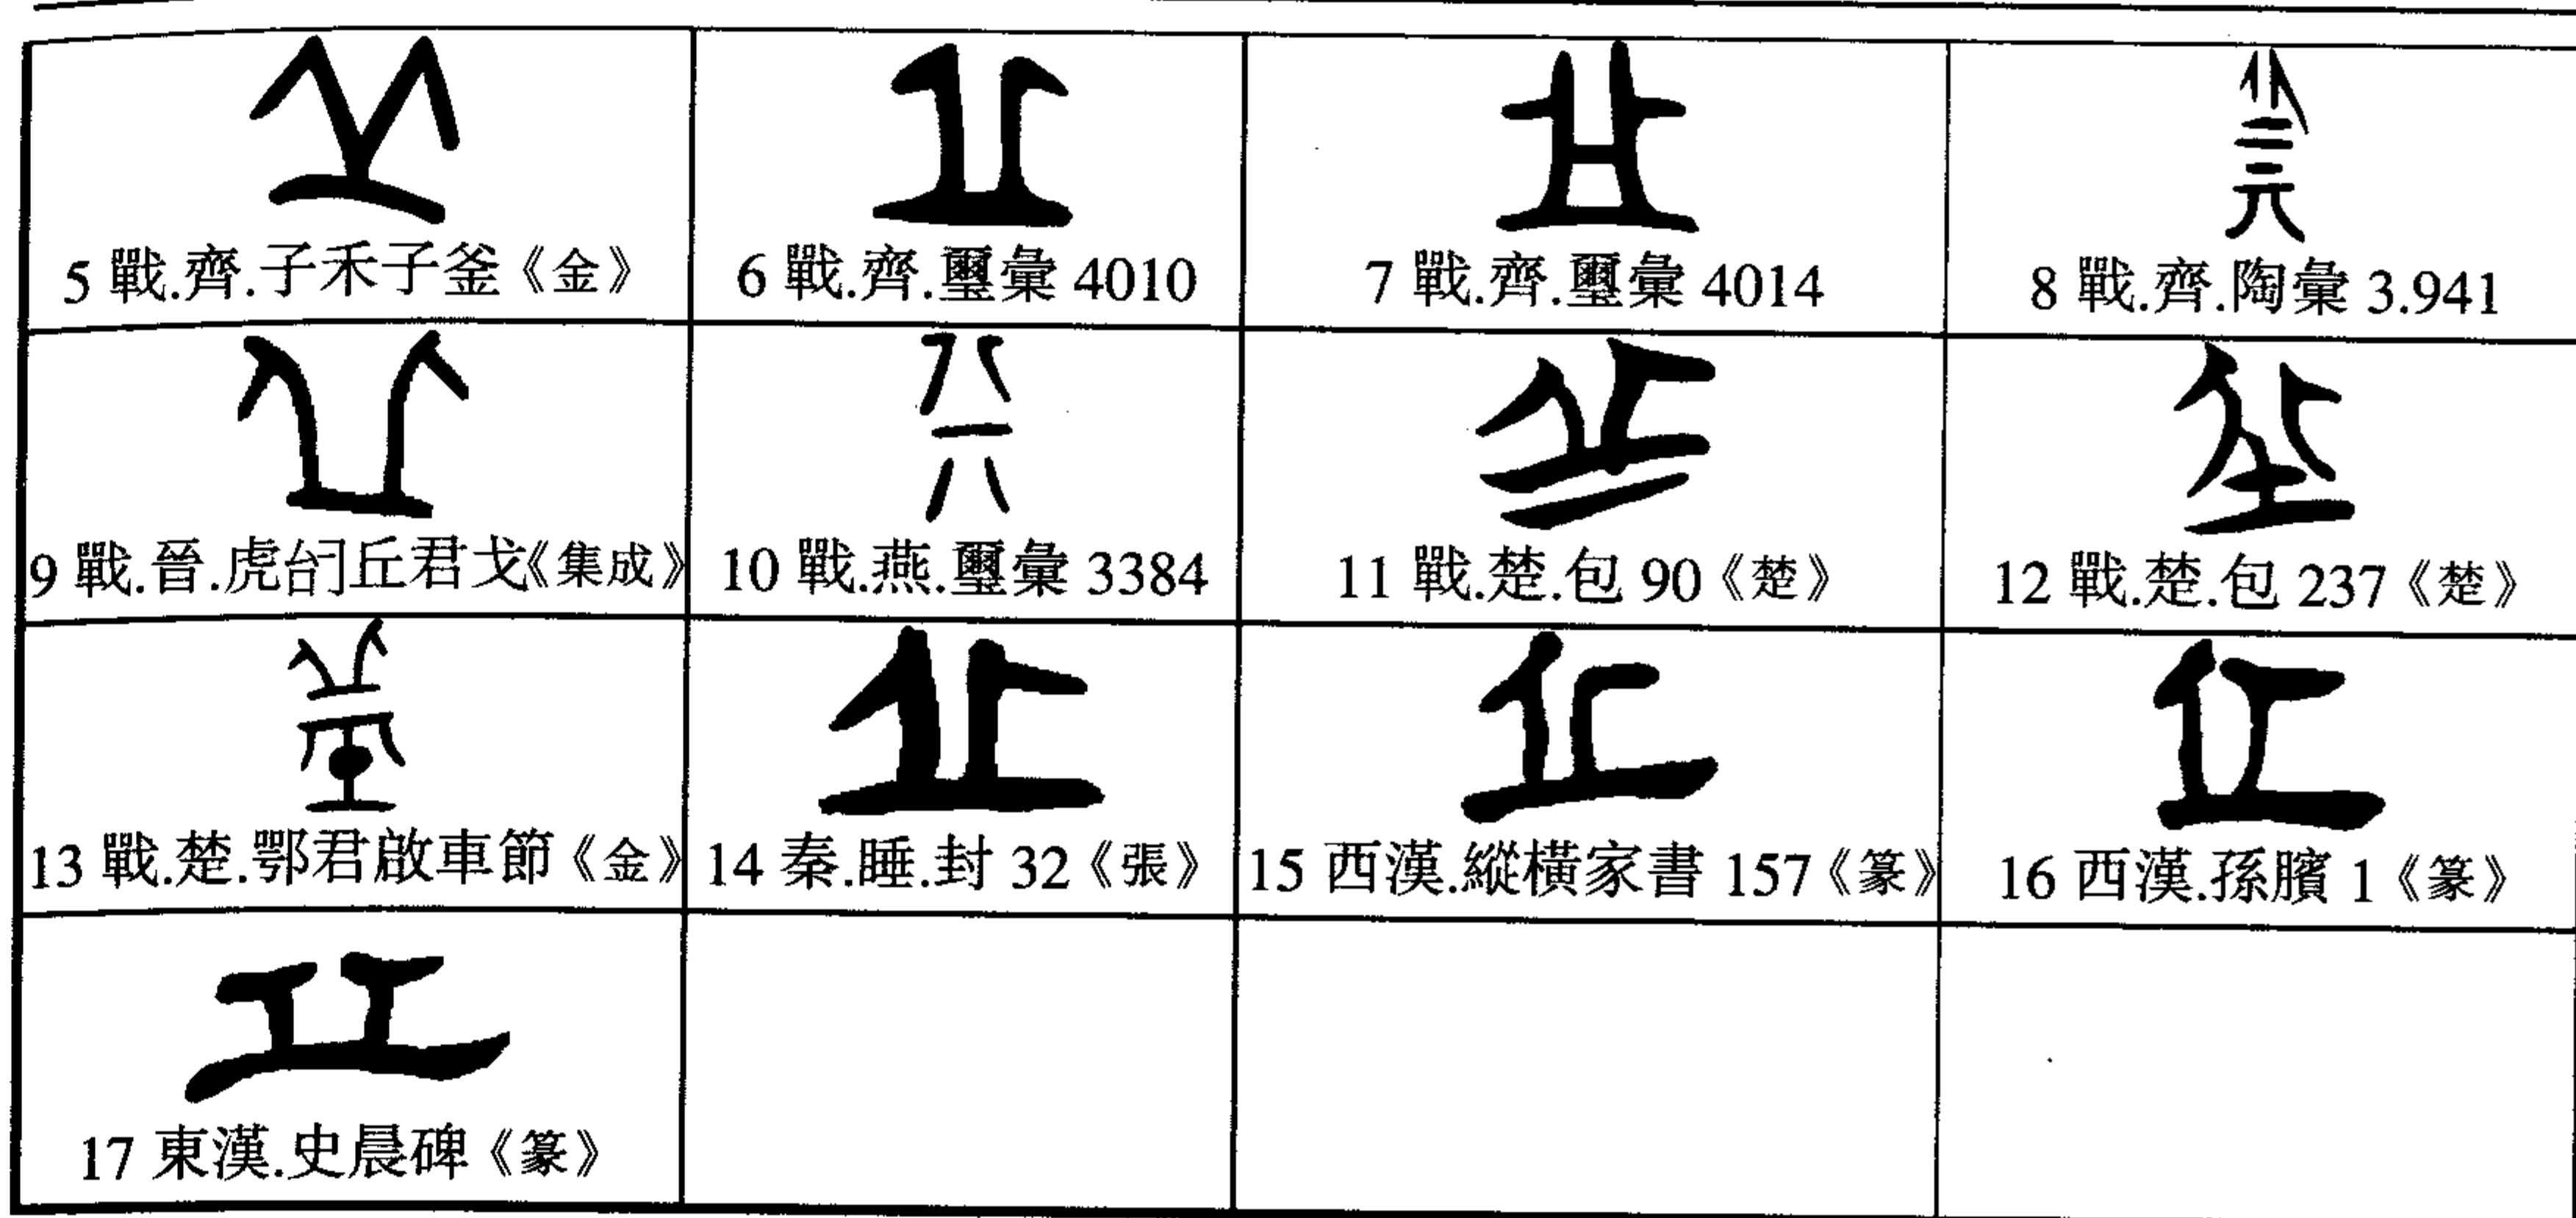 5 戰.齊.子禾子釜《金》
6 戰.齊.璽彙 4010
7 戰.齊.璽彙 4014
8 戰.齊.陶彙 3.941
9 戰.晉.虎丘君戈《集成》
10 戰.燕.璽彙 3384
11 戰.楚.包 90《楚》
12 戰.楚.包 237《楚》
13 戰.楚.鄂君啟車節《金》
14 秦.睡.封 32《張》
15 西漢.縱橫家書 157《篆》
16 西漢.孫臏 1《篆》
17 東漢.史晨碑《篆》